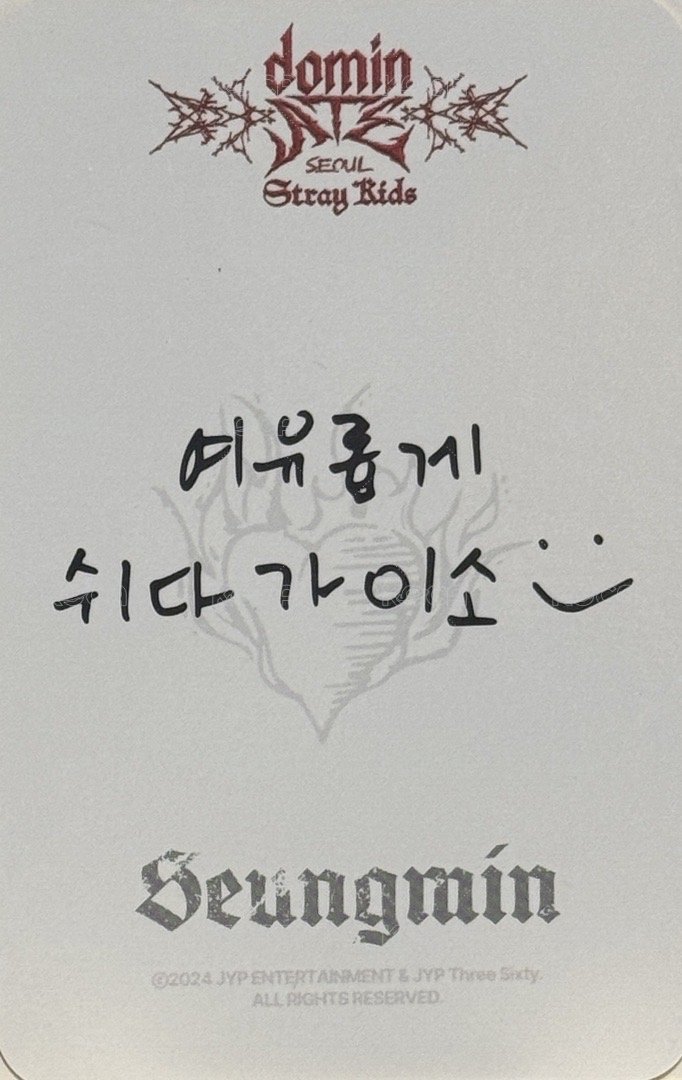 domin
ATE
SEOUL
Stray Kids
여유롭게
쉬다 가이소
Seungmin
©2024 JYP ENTERTAINMENT & JYP Three Sixty.
ALL RIGHTS RESERVED.